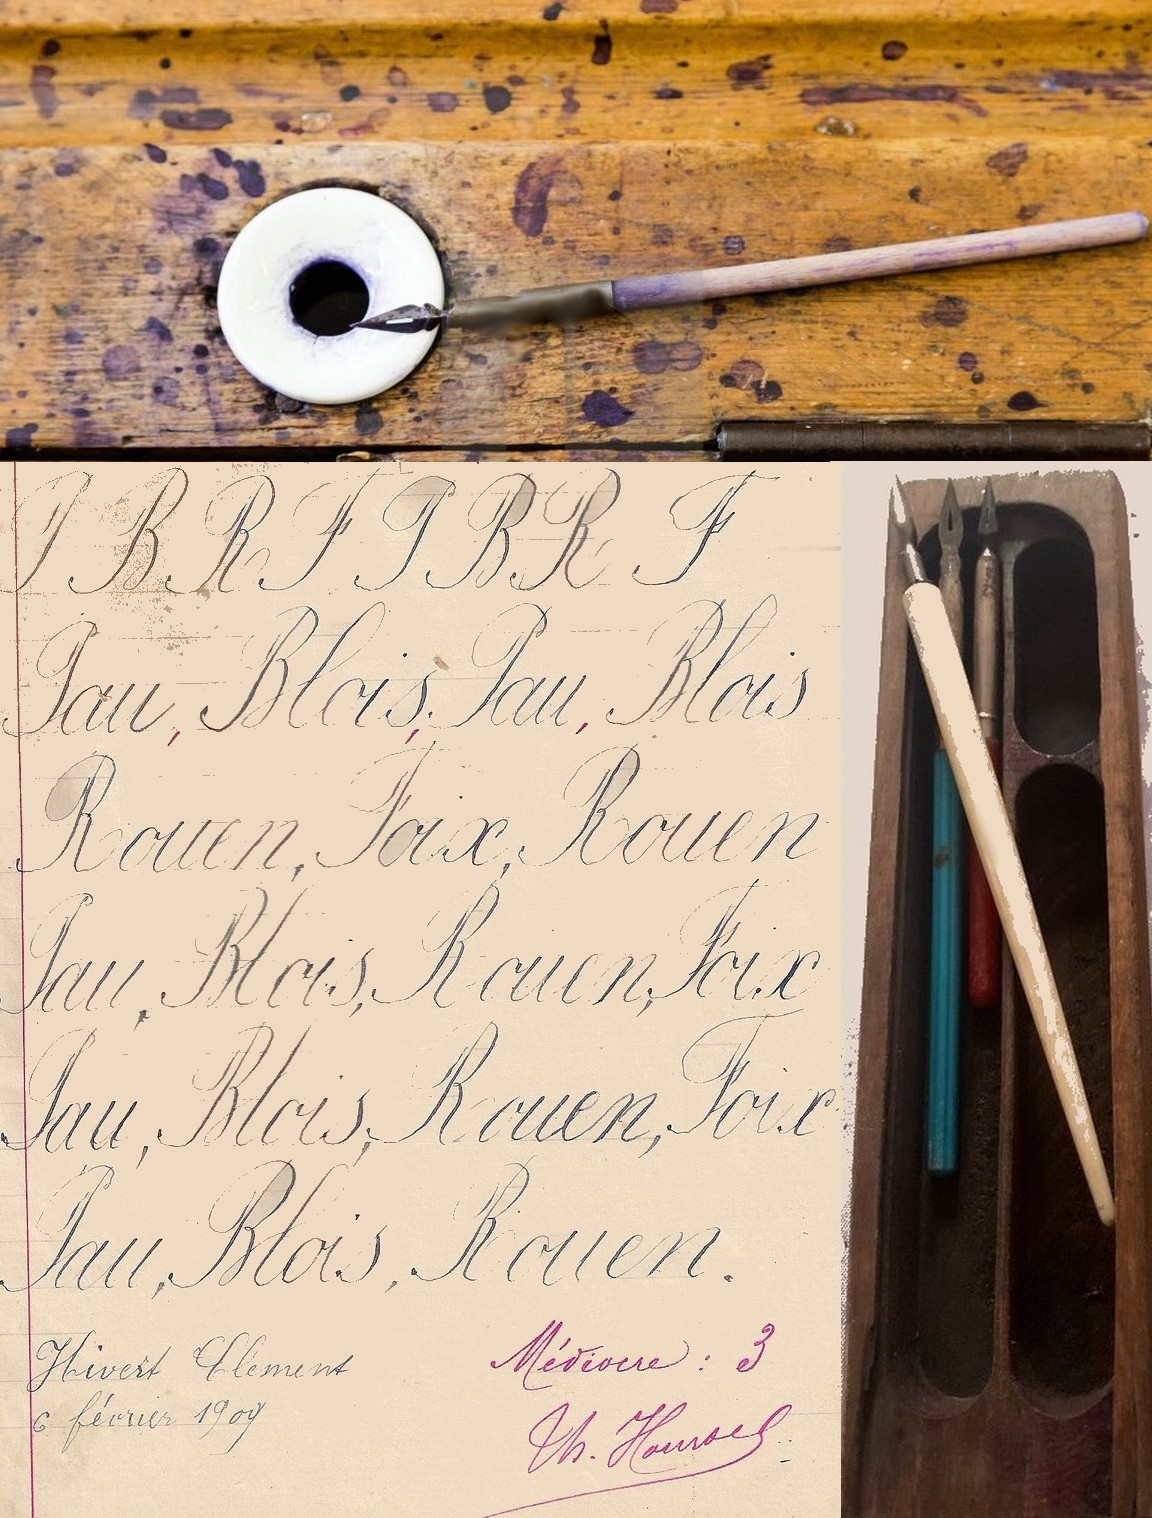 P B R F P B R F
Pau, Blois, Pau, Blois
Rouen, Foix, Rouen
Pau, Blois, Rouen, Foix
Pau, Blois, Rouen, Foix
Pau, Blois, Rouen.
Hivert Clément
6 février 1909
Médiocre : 3
Th.